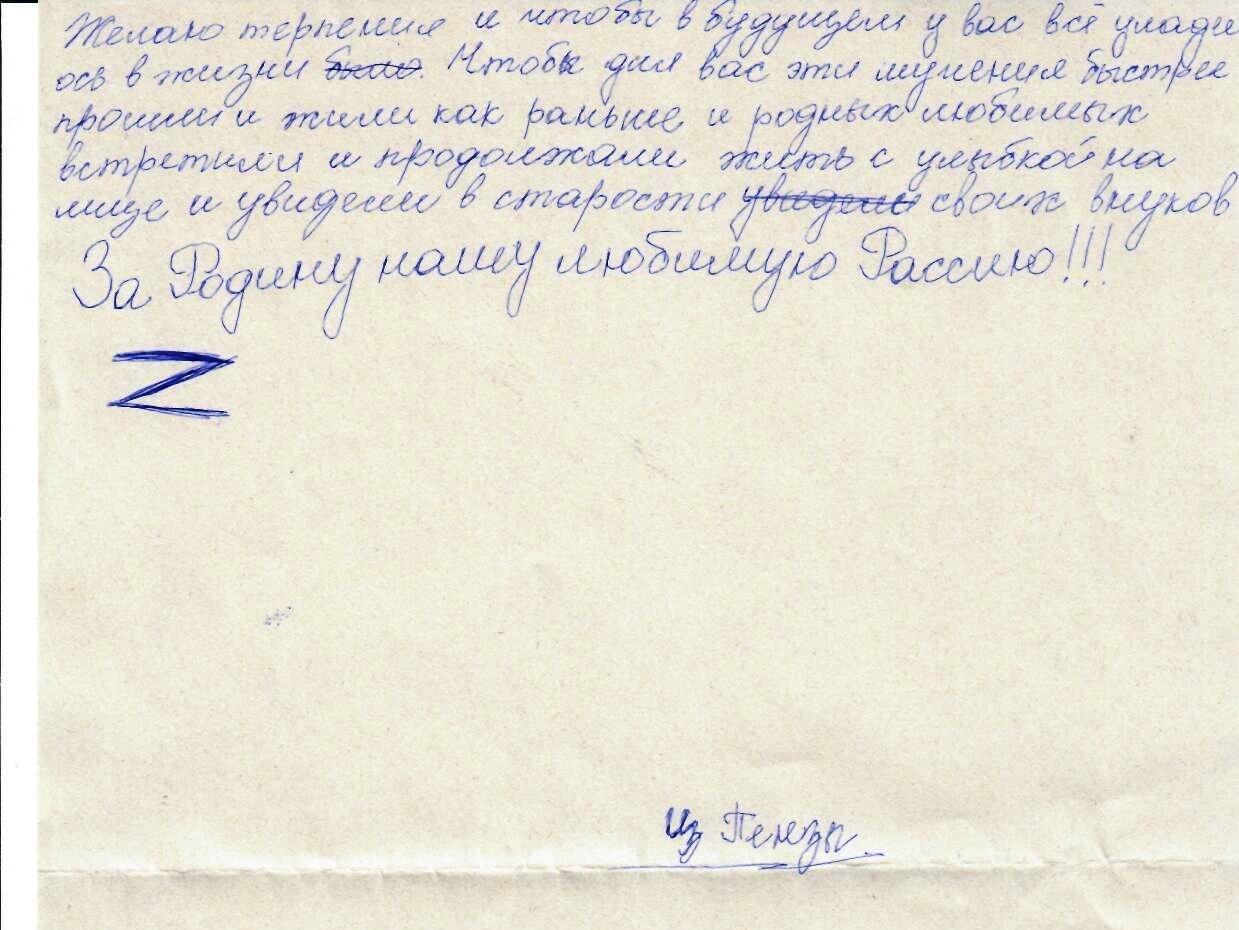 Желаю терпения и чтобы в будущем у вас всё улади
ось в жизни было. Чтобы для вас эти мучения быстрее
прошли и жили как раньше и родных любимых
встретили и продолжали жить с улыбкой на
лице и увидели в старости увидели своих внуков
За Родину нашу любимую Рассию!!!
Z
Из Пензы